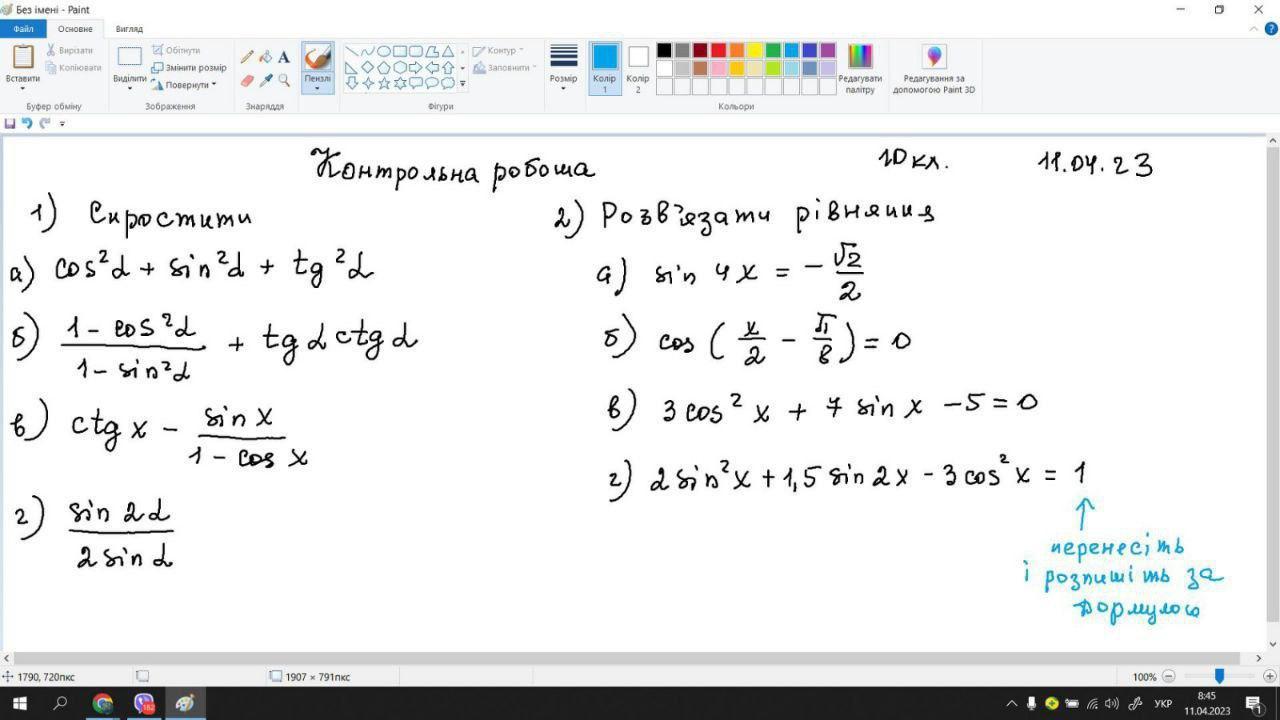 Без імені - Paint
Файл Основне Вигляд
Вставити
Вирізати
Копіювати
Буфер обміну
Виділити
Обітнути
Змінити розмір
Повернути
Зображення
A
Знаряддя
Пензлі
Контур
Заповнити
Фігури
Розмір
Колір 1
Колір 2
Редагувати палітру
Кольори
Редагування за допомогою Paint 3D
Контрольна робота 10 кл. 11.04.23
1) Спростити
а) cos²α + sin²α + tg²α
б) (1 - cos²α)/(1 - sin²α) + tgα ctgα
в) ctg x - sin x/(1 - cos x)
г) sin 2α/(2 sin α)
2) Розв'язати рівняння
а) sin 4x = - √2/2
б) cos (x/2 - π/8) = 0
в) 3 cos² x + 7 sin x - 5 = 0
г) 2 sin² x + 1,5 sin 2x - 3 cos² x = 1
перенесіть
і розпишіть за
формулою
1790, 720пкс
1907 × 791пкс
100%
182
УКР
8:45
11.04.2023
1